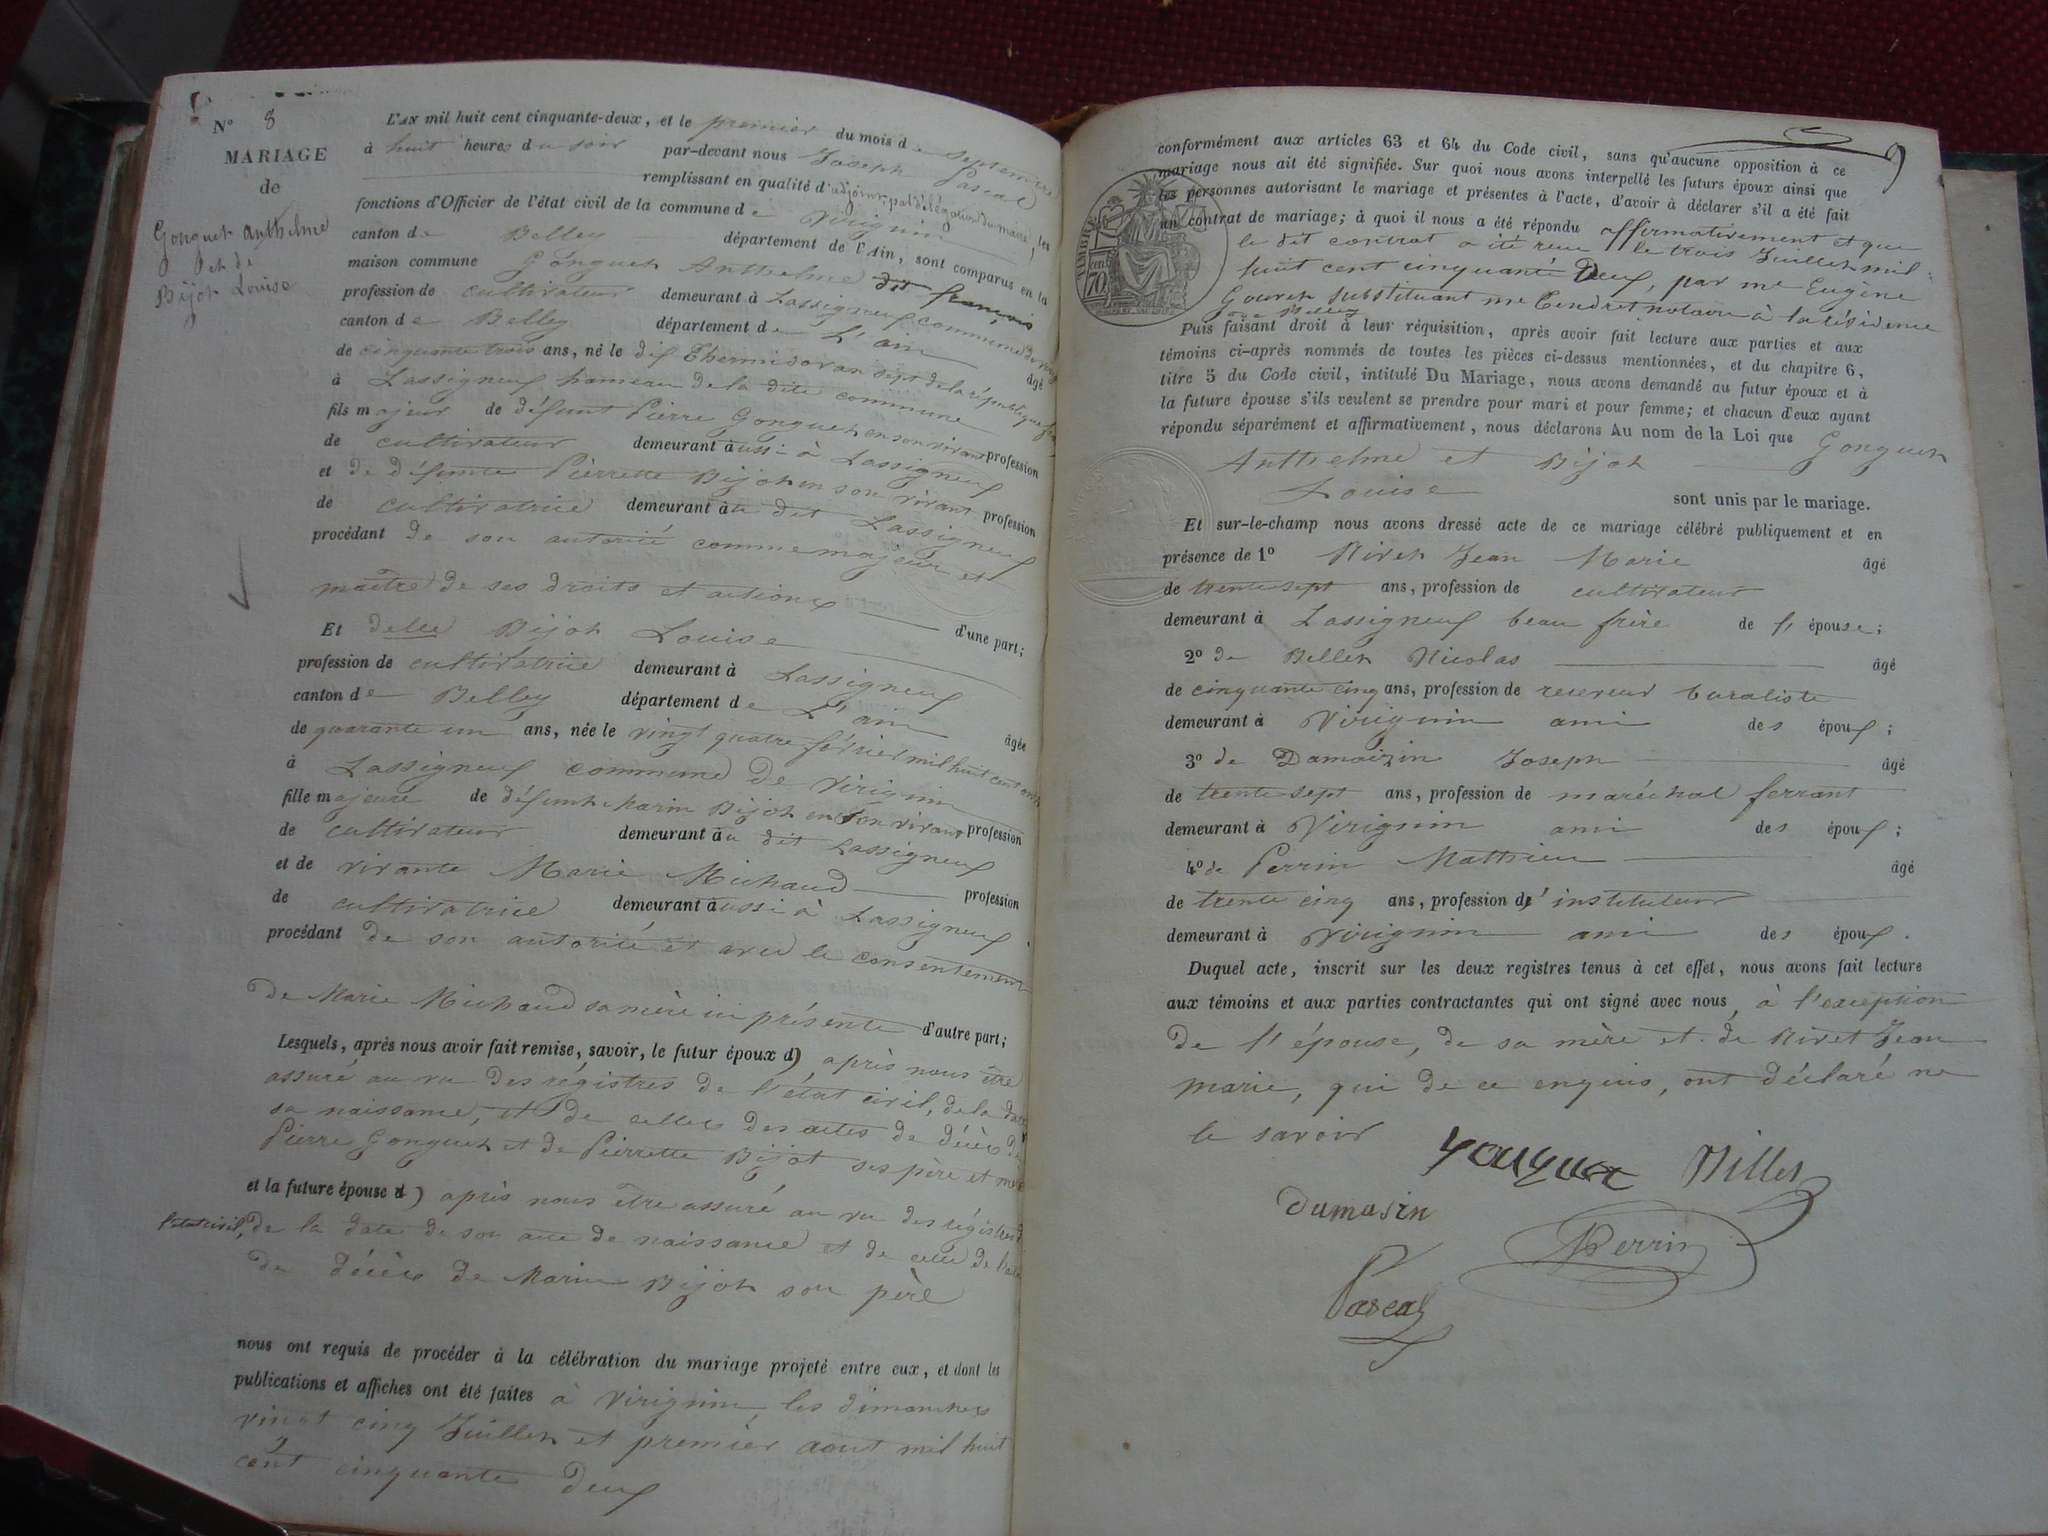 N° 8
MARIAGE
de
Gonguet Anthelme
et de
Bijot Louise
L'AN mil huit cent cinquante-deux, et le premier du mois de septembre
à huit heures du soir par-devant nous Joseph Pascal
remplissant en qualité d'adjoint délégation du maire, les
fonctions d'Officier de l'état civil de la commune de Virignin
canton de Belley département de l'Ain, sont comparus en la
maison commune Gonguet Anthelme dit françois
profession de cultivateur demeurant à Lassigneux commune de
canton de Belley département de L'ain âgé
de cinquante trois ans, né le dix Thermidor an sept de la république
à Lassigneux hameau de la dite commune
fils majeur de défunt Pierre Gonguet en son vivant profession
de cultivateur demeurant aussi à Lassigneux
et de défunte Pierrette Bijot en son vivant profession
de cultivatrice demeurant au dit Lassigneux
procédant de son autorité comme majeur et
maître de ses droits et actions d'une part;
Et delle Bijot Louise
profession de cultivatrice demeurant à Lassigneux
canton de Belley département de L'ain âgée
de quarante un ans, née le vingt quatre février mil huit cent onze
à Lassigneux commune de Virignin
fille majeure de défunt Marin Bijot en son vivant profession
de cultivateur demeurant au dit Lassigneux
et de vivante Marie Michaud profession
de cultivatrice demeurant aussi à Lassigneux
procédant de son autorité et avec le consentement
de Marie Michaud sa mère ici présente d'autre part;
Lesquels, après nous avoir fait remise, savoir, le futur époux d) après nous être
assuré au vu des régistres de l'état civil, de la date
sa naissance, et de celles des actes de décès de
Pierre Gonguet et de Pierrette Bijot ses père et mère
et la future épouse d) après nous être assuré au vu des régistres d
l'état civil, de la date de son acte de naissance et de celle de l'acte
de décès de Marin Bijot son père
nous ont requis de procéder à la célébration du mariage projeté entre eux, et dont les
publications et affiches ont été faites à Virignin, les dimanches
vingt cinq Juillet et premier aout mil huit
cent cinquante deux
9
conformément aux articles 63 et 64 du Code civil, sans qu'aucune opposition à ce
mariage nous ait été signifiée. Sur quoi nous avons interpellé les futurs époux ainsi que
les personnes autorisant le mariage et présentes à l'acte, d'avoir à déclarer s'il a été fait
un contrat de mariage; à quoi il nous a été répondu affirmativement et que
le dit contrat a été reçu le trois Juillet mil
huit cent cinquante Deux, par me Eugène
Gouret substituant me Tendret notaire à la résidence
de Belley
TIMBRE
70
Puis faisant droit à leur réquisition, après avoir fait lecture aux parties et aux
témoins ci-après nommés de toutes les pièces ci-dessus mentionnées, et du chapitre 6,
titre 5 du Code civil, intitulé Du Mariage, nous avons demandé au futur époux et à
la future épouse s'ils veulent se prendre pour mari et pour femme; et chacun d'eux ayant
répondu séparément et affirmativement, nous déclarons Au nom de la Loi que Gonguet
Anthelme et Bijot
Louise sont unis par le mariage.
Et sur-le-champ nous avons dressé acte de ce mariage célébré publiquement et en
présence de 1° Nivet Jean Marie âgé
de trente sept ans, profession de cultivateur
demeurant à Lassigneux beau frère de l'épouse;
2° de Billet Nicolas âgé
de cinquante cinq ans, profession de receveur buraliste
demeurant à Virignin ami des époux;
3° de Damaizin Joseph âgé
de trente sept ans, profession de maréchal ferrant
demeurant à Virignin ami des époux;
4° de Perrin Mathieu âgé
de trente cinq ans, profession d'instituteur
demeurant à Virignin ami des époux.
Duquel acte, inscrit sur les deux registres tenus à cet effet, nous avons fait lecture
aux témoins et aux parties contractantes qui ont signé avec nous, à l'exception
de l'épouse, de sa mère et de Nivet Jean
marie, qui de ce enquis, ont déclaré ne
le savoir
gonguet Billet
Dumasin
Perrin
Pascal